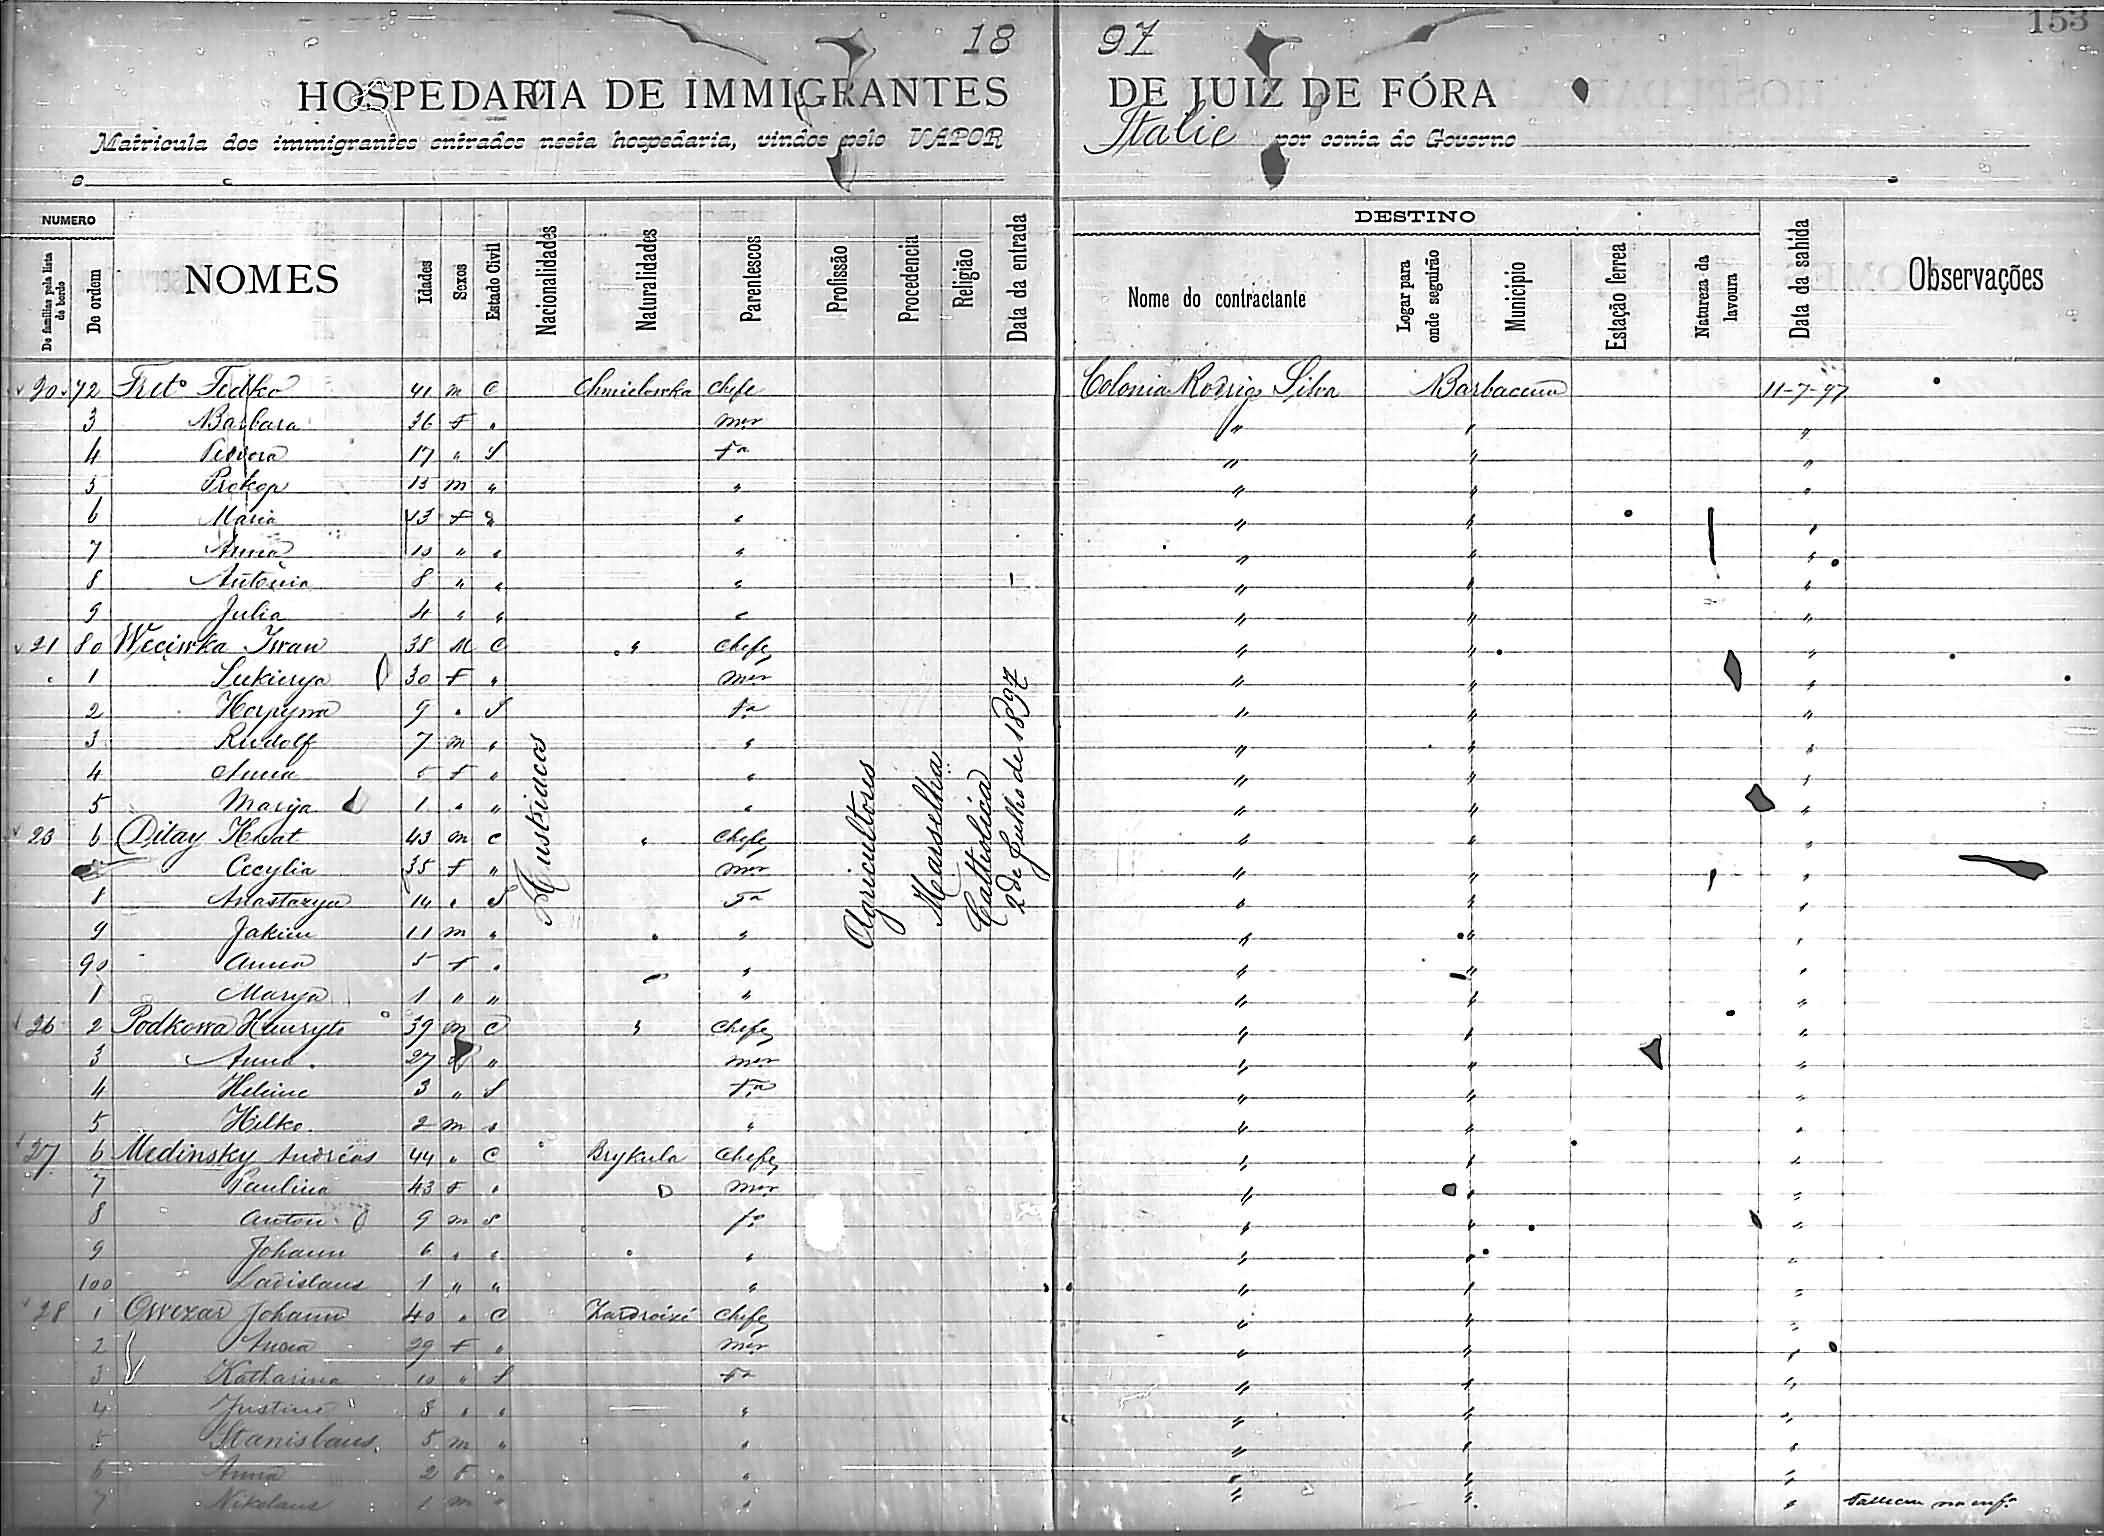 153
18 97
HOSPEDARIA DE IMMIGRANTES DE JUIZ DE FÓRA
Matricula dos immigrantes entrados nesta hospedaria, vindos pelo VAPOR Italie por conta do Governo
NUMERO DESTINO
De familias pela lista de bordo De ordem NOMES Idades Sexos Estado Civil Nacionalidades Naturalidades Parentescos Profissão Procedencia Religião Data da entrada Nome do contractante Logar para onde seguirão Municipio Estação ferrea Natureza da lavoura Data da sahida Observações
20 72 Fedko 41 m C Chmielowka Chefe Colonia Rodrigo Silva Barbacena 11-7-97
3 Barbara 36 F " mer " " "
4 17 " S fa " " "
5 Prokop 13 m " " " " "
6 Maria 13 F " " " " "
7 Anna 10 " " " " " "
8 Antonia 8 " " " " " "
9 Julia 4 " " " " " "
21 80 Weciwka Iwan 38 M C " Chefe " " "
1 Lukierya 30 F " mer " " "
2 9 " S fa " " "
3 Rudolf 7 m " " " " "
4 Anna 5 F " " " " "
5 Marija 1 " " " " " "
23 6 Ditay 43 m C " Chefe " " "
Cecylia 35 F " mer " " "
8 Anastazya 14 " S fa " " "
9 Jakim 11 m " " " " "
90 Anna 5 F " " " " "
1 Marya 1 " " " " " "
26 2 Podkowa 39 m C " Chefe " " "
3 Anna 27 " mer " " "
4 Helene 3 " S fa " " "
5 Hilko 2 m " " " " "
27 6 Medinsky Andréas 44 " C Brykula Chefe " " "
7 Paulina 43 F " mer " " "
8 Anton 9 m S fo " " "
9 Johann 6 " " " " " "
100 Ladislaus 1 " " " " " "
28 1 Owczar Johann 40 " C Chefe " " "
2 Anna 29 F " mer " " "
3 Katharina 10 " S fa " " "
4 Justine 8 " " " " " "
5 Stanislaus 5 m " " " " "
6 Anna 2 F " " " " "
7 Nikolaus 1 m " " " " "
Austriacos
Agricultores
Marselha
Catholica
2 de Julho de 1897